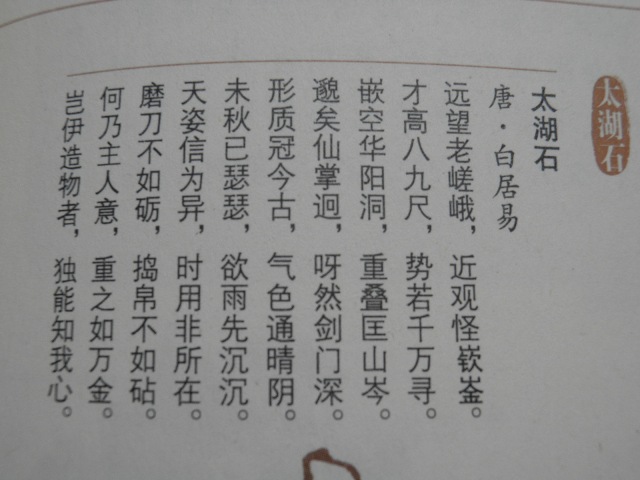 太湖石
太湖石
唐·白居易
远望老嵯峨，近观怪嵚崟。
才高八九尺，势若千万寻。
嵌空华阳洞，重叠匡山岑。
邈矣仙掌迥，呀然剑门深。
形质冠今古，气色通晴阴。
未秋已瑟瑟，欲雨先沉沉。
天姿信为异，时用非所在。
磨刀不如砺，捣帛不如砧。
何乃主人意，重之如万金。
岂伊造物者，独能知我心。